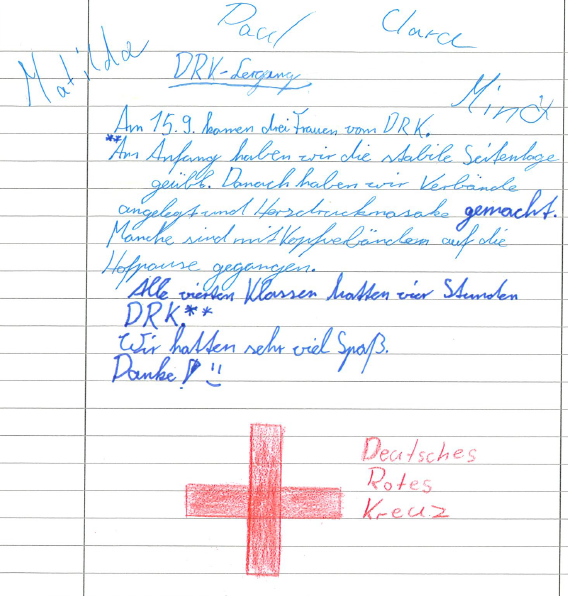 Paul Clara
Matilda
DRK-Lergang
Mina
Am 15.9. kamen drei Frauen vom DRK.
**Am Anfang haben wir die stabile Seitenlage
geübt. Danach haben wir Verbände
angelegt und Herzdruckmasake gemacht.
Manche sind mit Kopfverbänden auf die
Hofpause gegangen.
Alle vierten Klassen hatten vier Stunden
DRK.**
Wir hatten sehr viel Spaß.
Danke!
Deutsches
Rotes
Kreuz